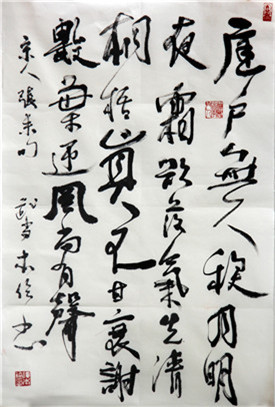 庭户無人秋月明
夜霜欲落氣先清
桐梧真不甘衰謝
數葉迎風尚有聲
宋人張耒句
书